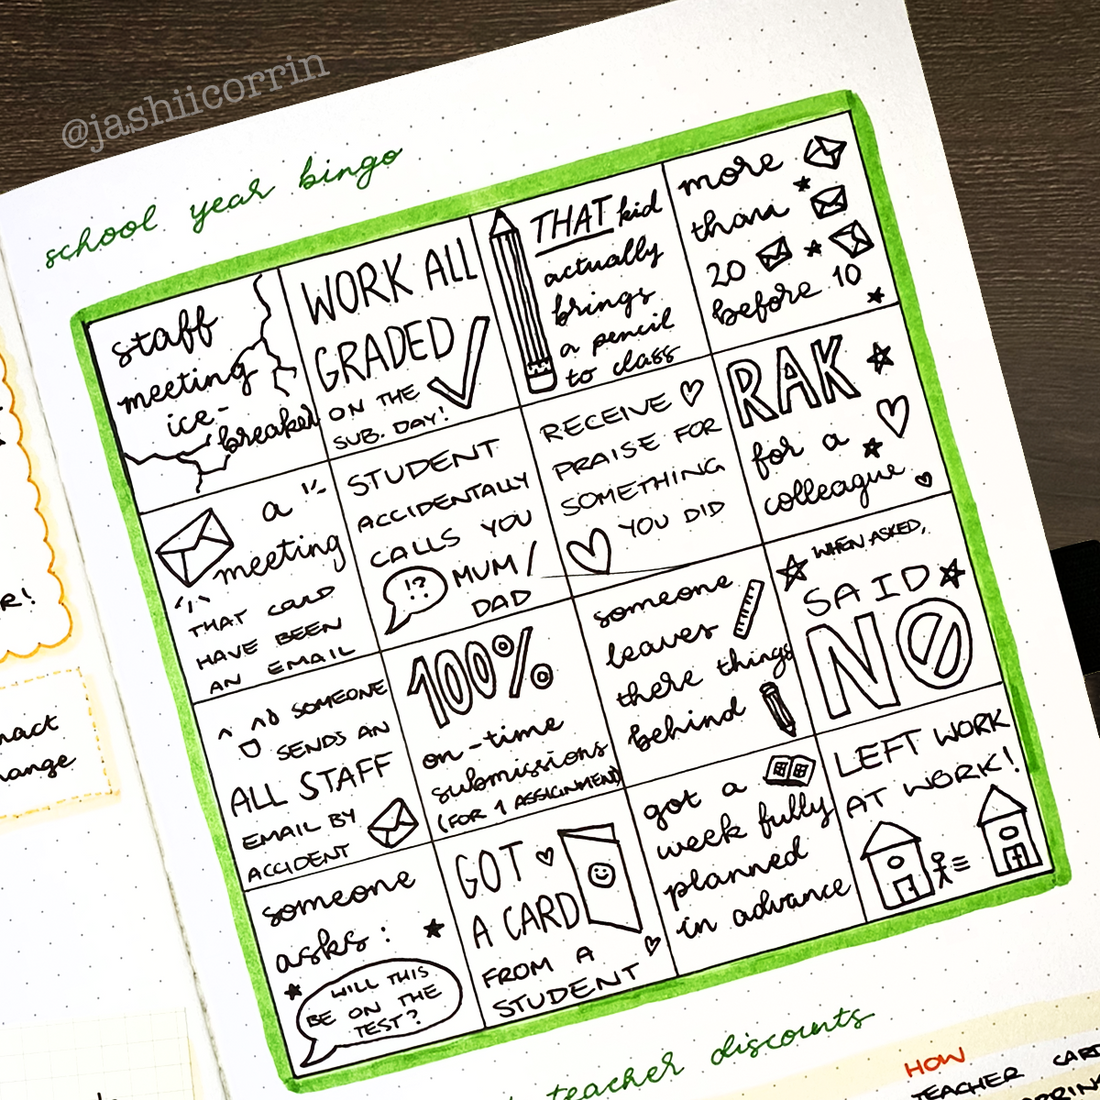 @jashiicorrin
school year bingo
staff
meeting
ice-
breaker
WORK ALL
GRADED
ON THE
SUB. DAY!
THAT kid
actually
brings
a pencil
to class
more
than
20
before 10
a
meeting
THAT COULD
HAVE BEEN
AN EMAIL
STUDENT
ACCIDENTALLY
CALLS YOU
!? MUM/
DAD
RECEIVE
PRAISE FOR
SOMETHING
YOU DID
RAK
for a
colleague
SOMEONE
SENDS AN
ALL STAFF
EMAIL BY
ACCIDENT
100%
on-time
submissions
(FOR 1 ASSIGNMENT)
someone
leaves
there things
behind
WHEN ASKED,
SAID
NO
someone
asks:
WILL THIS
BE ON THE
TEST?
GOT
A CARD
FROM A
STUDENT
got a
week fully
planned
in advance
LEFT WORK
AT WORK!
teacher discounts
HOW
TEACHER